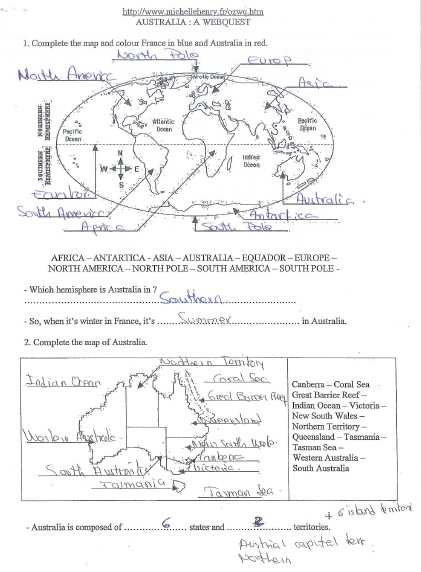 http://www.michellehenry.fr/ozwq.htm
AUSTRALIA : A WEBQUEST
1. Complete the map and colour France in blue and Australia in red.
North Pole
Europ
North America
Arctic Ocean
Asia
NORTHERN HEMISPHERE
Pacific Ocean
Atlantic Ocean
Pacific Ocean
SOUTHERN HEMISPHERE
N
W E
S
Indian Ocean
Equator
Australia
South America
Antartica
Africa
South Pole
AFRICA – ANTARTICA - ASIA – AUSTRALIA – EQUADOR – EUROPE –
NORTH AMERICA – NORTH POLE – SOUTH AMERICA – SOUTH POLE -
- Which hemisphere is Australia in ?
Southern
- So, when it's winter in France, it's Summer in Australia.
2. Complete the map of Australia.
Northern Territory
Indian Ocean
Coral Sea
Great Barrier Reef
Queensland
Western Australia
New South Wales
Canberra
South Australia
Victoria
Tasmania
Tasman Sea
Canberra – Coral Sea
Great Barrier Reef –
Indian Ocean – Victoria –
New South Wales –
Northern Territory –
Queensland – Tasmania –
Tasman Sea –
Western Australia –
South Australia
+ 6 island territori
- Australia is composed of 6 states and 2 territories.
capital terr.
Northern